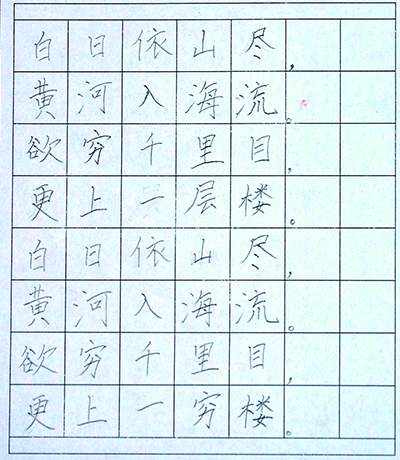 白日依山尽，
黄河入海流。
欲穷千里目，
更上一层楼。
白日依山尽，
黄河入海流。
欲穷千里目，
更上一穷楼。